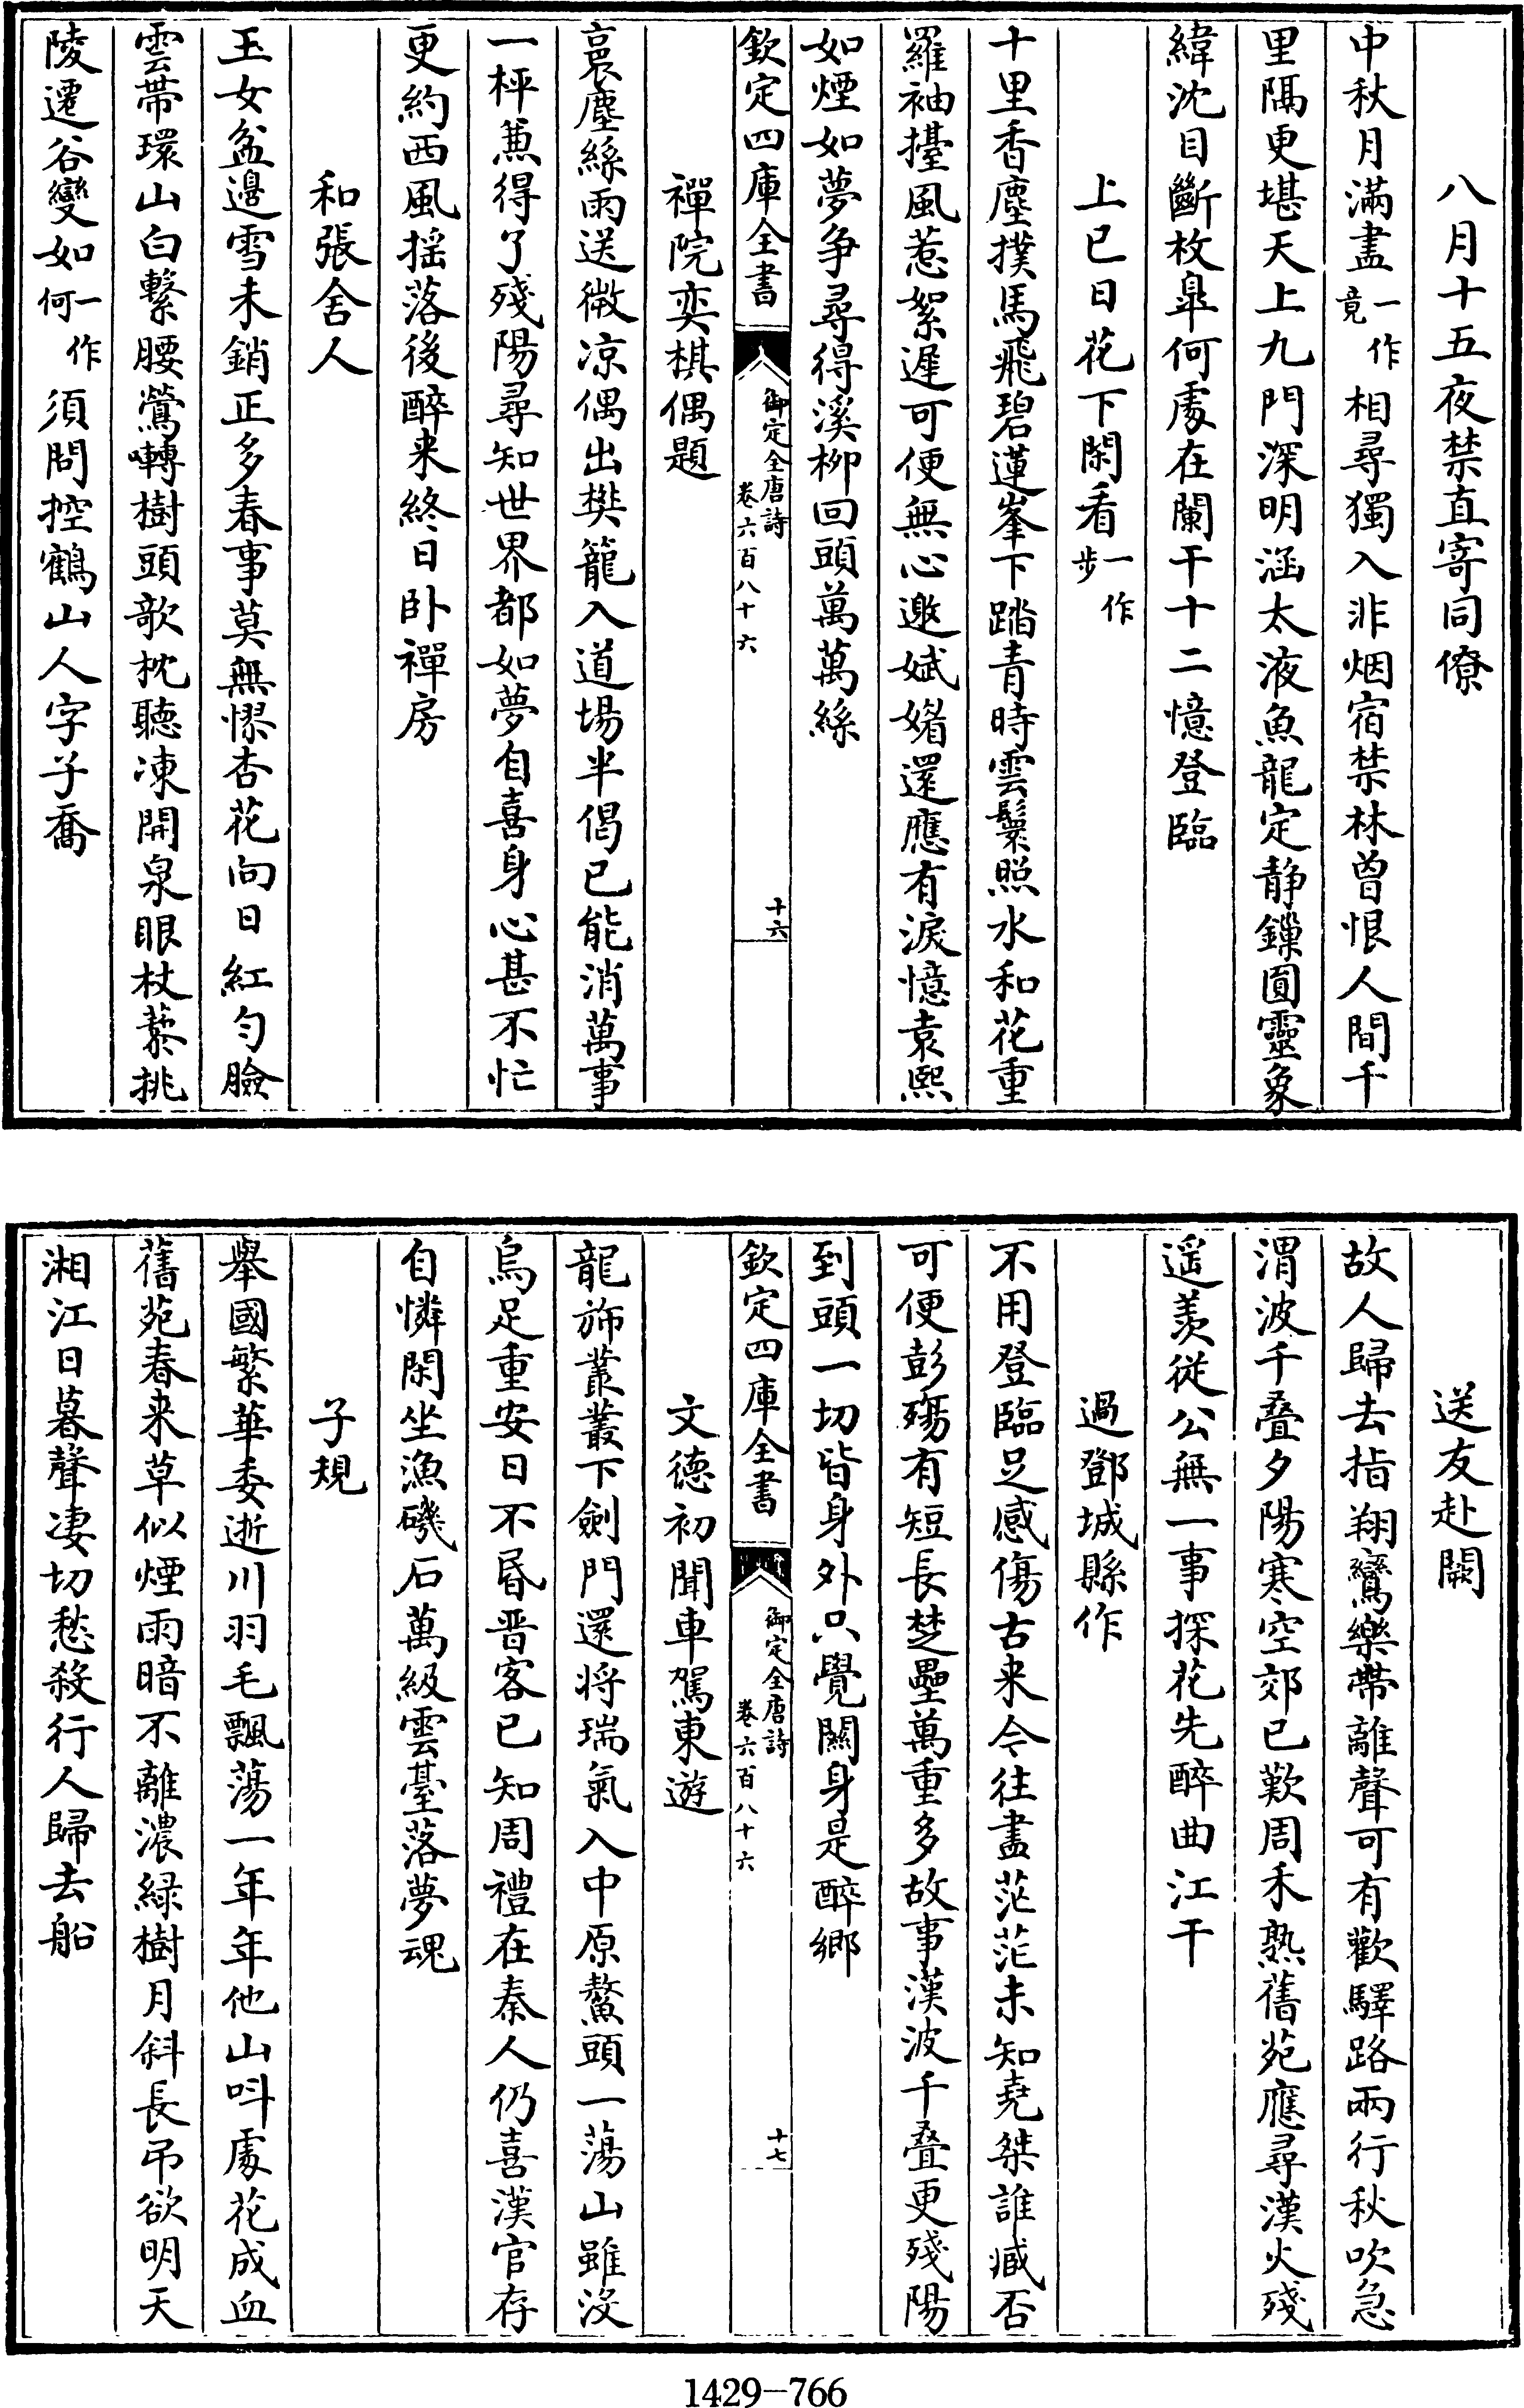 八月十五夜禁直寄同僚
中秋月滿盡一作竟相尋獨入非烟宿禁林曾恨人間千
里隔更堪天上九門深明涵太液魚龍定静鏁圓靈象
緯沈目斷枚臯何處在闌干十二憶登臨
上巳日花下閑看一作步
十里香塵撲馬飛碧蓮峯下踏青時雲鬟照水和花重
羅袖擡風惹絮遲可便無心邀娬媚還應有淚憶袁熙
如煙如夢爭尋得溪柳回頭萬萬絲
欽定四庫全書
御定全唐詩
卷六百八十六
十六
禪院奕棋偶題
裛塵絲雨送微凉偶出樊籠入道場半偈已能消萬事
一枰兼得了殘陽尋知世界都如夢自喜身心甚不忙
更約西風揺落後醉来終日卧禪房
和張舍人
玉女盆邊雪未銷正多春事莫無憀杏花向日紅勻臉
雲帶環山白繫腰鶯囀樹頭欹枕聽凍開泉眼杖藜挑
陵遷谷變如一作何須問控鶴山人字子喬
送友赴闕
故人歸去指翔鸞樂帶離聲可有歡驛路兩行秋吹急
渭波千叠夕陽寒空郊已歎周禾熟舊苑應尋漢火殘
遥羨從公無一事探花先醉曲江干
過鄧城縣作
不用登臨足感傷古来今往盡茫茫未知堯桀誰臧否
可便彭殤有短長楚壘萬重多故事漢波千叠更殘陽
到頭一切皆身外只覺關身是醉鄉
欽定四庫全書
御定全唐詩
卷六百八十六
十七
文德初聞車駕東遊
龍斾叢叢下劍門還将瑞氣入中原鰲頭一蕩山雖没
烏足重安日不昏晋客已知周禮在秦人仍喜漢官存
自憐閑坐漁磯石萬級雲臺落夢魂
子規
舉國繁華委逝川羽毛飄蕩一年年他山呌處花成血
舊苑春来草似煙雨暗不離濃緑樹月斜長吊欲明天
湘江日暮聲凄切愁殺行人歸去船
1429-766